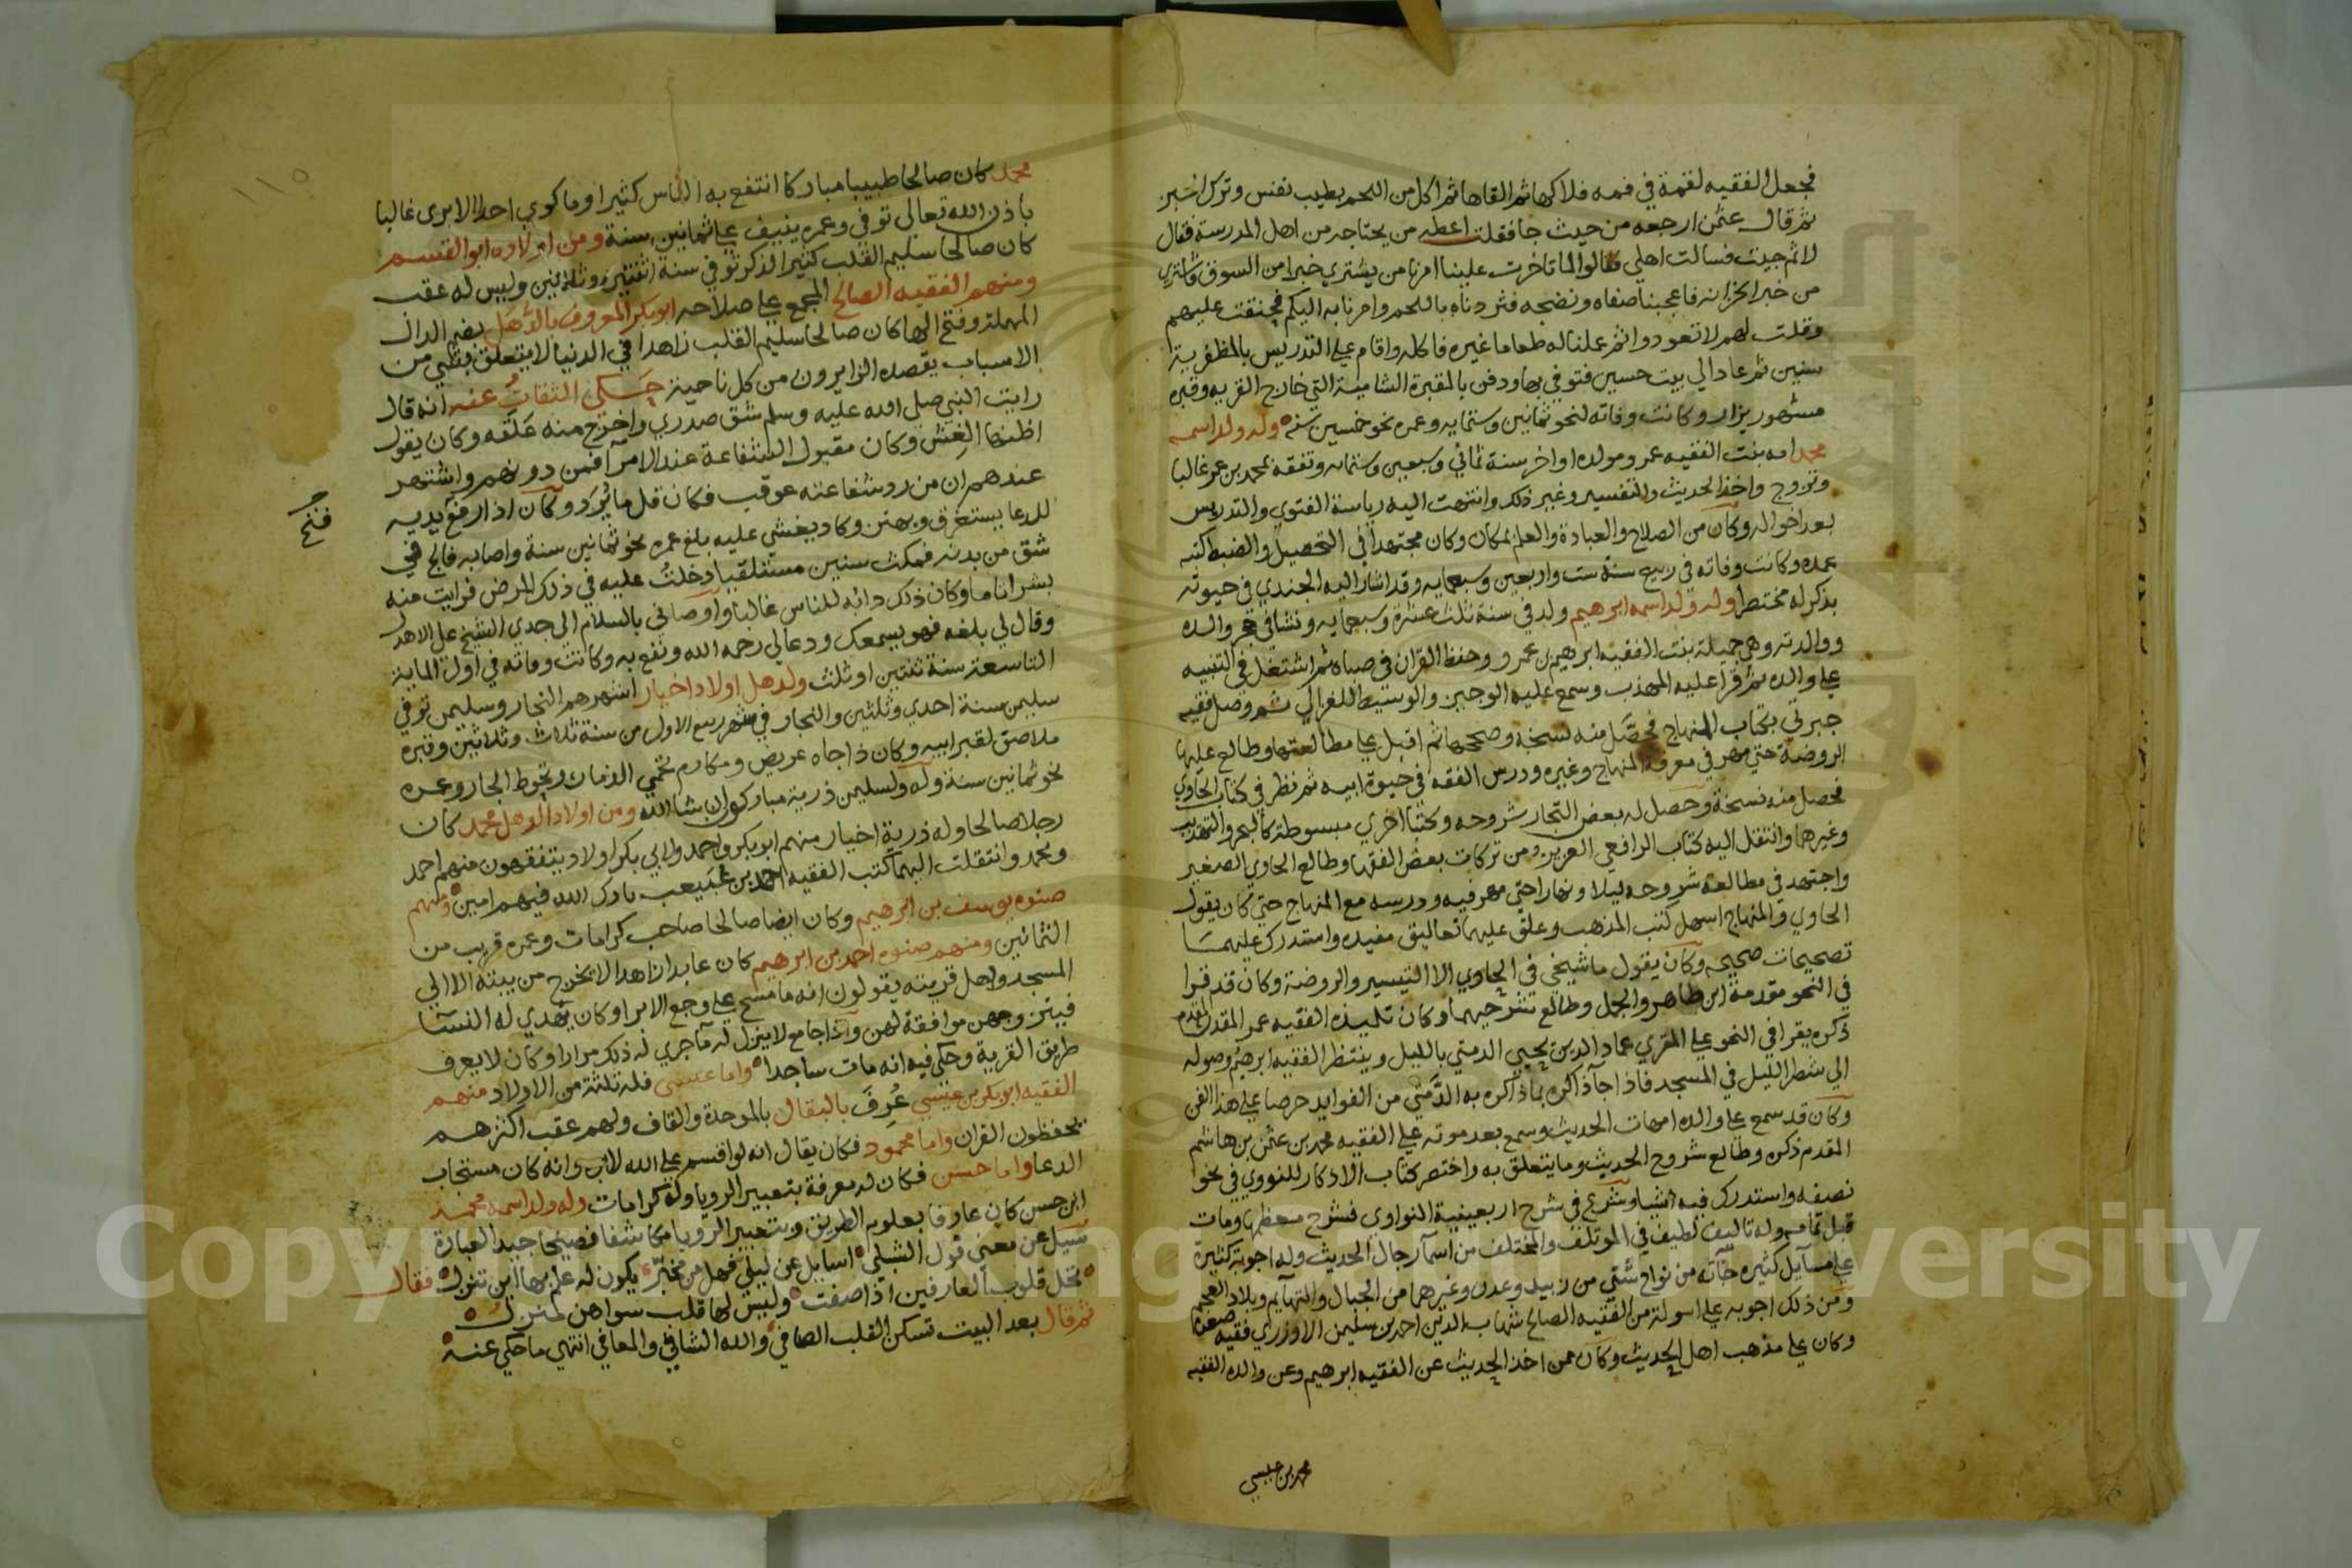 فجعل الفقيه لقمة في فمه فلاكها ثم القاها ثم اكل من اللحم بطيب نفس وترك الخبز
ثم قال عثمن ارجعه من حيث جا فقلت اعطه من يحتاجه من اهل المدرسة فقال
لا ثم جيت فسالت اهلي فقالوا لما تاخرت علينا امرنا من يشتري خبزا من السوق فاشتري
من خبز الخزانه فاعجبنا صفاه ونضجه فثردناه باللحم وامرنا به اليكم فحنقت عليهم
وقلت لهم لا تعودوا ثم عملنا له طعاما غيره فاكله واقام علي التدريس بالمظفرية
سنين ثم عاد الي بيت حسين فتوفي بها ودفن بالمقبرة الشامية التي خارج القريه وقبره
مشهور يزار وكانت وفاته لنحو ثمانين وستمايه وعمره نحو خمسين سنه وله ولد اسمه
محمد امه بنت الفقيه عمرو مولده اواخر سنة ثماني وسبعين وستمايه وتفقه بمحمد بن عمر غالبا
وتزوج واخذ الحديث والتفسير وغير ذلك وانتهت اليه رياسة الفتوي والتدريس
بعد اخواله وكان من الصلاح والعبادة والعلم بمكان وكان مجتهدا في التحصيل والضبط لكتبه
عمده وكانت وفاته في ربيع سنة ست واربعين وسبعمايه وقد اشار اليه الجندي في حيوته
بذكر له مختصر وله ولد اسمه ابرهيم ولد في سنة ثلث عشرة وسبعمايه ونشا في حجر والده
ووالدته وهي جميلة بنت الفقيه ابرهيم بن عمرو وحفظ القران في صباه ثم اشتغل في التنبيه
علي والده ثم قرا عليه المهذب وسمع عليه الوجيز والوسيط للغزالي ثم وصل فقيه
جبرتي بكتاب المنهاج فحصَّل منه نسخة وصححها ثم اقبل علي مطالعتها وطالع عليها
الروضة حتي مهر في معرفة المنهاج وغيره ودرس الفقه في حيوة ابيه ثم نظر في كتاب الحاوي
فحصل منه نسخة وحصل له بعض التجار شروحه وكتبا اخري مبسوطة كالبحر والتهذيب
وغيرهما وانتقل اليه كتاب الرافعي العزيز ومن تركات بعض الفقها وطالع الحاوي الصغير
واجتهد في مطالعة شروحه ليلا ونهارا حتي مهر فيه ودرسه مع المنهاج حتي كان يقول
الحاوي والمنهاج اسهل كتب المذهب وعلق عليهما تعاليق مفيده واستدرك عليهما
تصحيحات صحيحه وكان يقول ما شيخي في الحاوي الا التيسير والروضة وكان قد قرا
في النحو مقدمة ابن طاهر والجمل وطالع شرحيهما وكان تلميذه الفقيه عمر المقدم
ذكره يقرا في النحو علي المقري عماد الدين يحيي الدمتي بالليل وينتظر الفقيه ابرهيم وصوله
الي شطر الليل في المسجد فاذا جآ ذاكره بما ذاكره به الدَّمتي من الفوايد حرصا علي هذا الفن
وكان قد سمع علي والده امهات الحديث وسمع بعد موته علي الفقيه محمد بن عثمن بن هاشم
المقدم ذكره وطالع شروح الحديث وما يتعلق به واختصر كتاب الاذكار للنووي في نحو
نصفه واستدرك فيه اشيا وشرع في شرح اربعينية النواوي فشرح معظمها ومات
قبل تمامه وله تاليف لطيف في الموتلف والمختلف من اسمآ رجال الحديث وله اجوبة كثيرة
علي مسآيل كثيره جآته من نواح شتي من زبيد وعدن وغيرهما من الجبال والتهآيم وبلاد العجم
ومن ذلك اجوبه علي اسولة من الفقيه الصالح شهاب الدين احمد بن سليمن الاوزري فقيه صعدة
وكان علي مذهب اهل الحديث وكان ممن اخذ الحديث عن الفقيه ابرهيم وعن والده الفقيه
محمد بن عيسي
١١٥
محمد كان صالحا طبيبا مباركا انتفع به الناس كثيرا وما كوي احدا الا برى غالبا
باذن الله تعالى توفي وعمره ينيف علي ثمانين سنة ومن اولاده ابو القسم
كان صالحا سليم القلب كثير الذكر توفي سنة اثنتين وثلاثين وليس له عقب
ومنهم الفقيه الصالح المجمع علي صلاحه ابو بكر المعروف بالدُّهَل بضم الدال
المهملة وفتح الها كان صالحا سليم القلب زاهدا في الدنيا لا يتعلق بشي من
الاسباب يقصده الزايرون من كل ناحية حَكى الثقاتُ عنه انه قال
رايت النبي صلى الله عليه وسلم شق صدري واخرج منه عَلَقه وكان يقول
اظنها الغِش وكان مقبول الشفاعة عند الامرآ فمن دونهم واشتهر
عندهم ان من رد شفاعته عوقب فكان قل ما يُرَد وكان اذا رفع يديه
للدعا يستغرق ويهتز وكاد يغشي عليه بلغ عمره نحو ثمانين سنة واصابه فالج في
فتح
شق من بدنه فمكث سنين مستلقيا دخلتُ عليه في ذلك المرض فرايت منه
بشرا تاما وكان ذلك دابه للناس غالبا واوصاني بالسلام الي جدي الشيخ علي الاهدل
وقال لي بلغه فهو يسمعك ودعا لي رحمه الله ونفع به وكانت وفاته في اول الماية
التاسعة سنة ثنتين او ثلث ولدهل اولاد اخيار اشهرهم النجار وسليمن توفي
سليمن سنة احدي وثلثين والنجار في شهر ربيع الاول من سنة ثلاث وثلاثين وقبره
ملاصق لقبر ابيه وكان ذا جاه عريض ومكارم تحمي الذمار وتحوط الجار وعمره
نحو ثمانين سنة وله ولسليمن ذرية مباركون ان شا الله ومن اولاد الدهل محمد كان
رجلا صالحا وله ذرية اخيار منهم ابو بكر واحمد ولابي بكر اولاد يتفقهون منهم احمد
ومحمد وانتقلت اليهما كتب الفقيه احمد بن بارك الله فيهم امين ومنهم
صنوه يوسف بن ابرهيم وكان ايضا صالحا صاحب كرامات وعمره قريب من
الثمانين ومنهم صنوه احمد بن ابرهيم كان عابدا زاهدا لا يخرج من بيته الا الي
المسجد واهل قريته يقولون انه ما مسح علي وجع الا برا وكان يهدي له النسآ
فيتزوجهن موافقة لهن واذا جامع لا ينزل له مآ جري له ذلك مرارا وكان لا يعرف
طريق القرية وحكي فيه انه مات ساجدا واما عيسى فله ثلثة من الاولاد منهم
الفقيه ابو بكر بن عيسي عُرِفَ بالبقال بالموحدة والقاف ولهم عقب اكثرهم
يحفظون القران واما محمود فكان يقال انه لو اقسم علي الله لابر وانه كان مستجاب
الدعا واما حسن فكان له معرفة بتعبير الرويا وله كرامات وله ولد اسمه محمد
ابن حسن كان عارفا بعلوم الطريق وبتعبير الرويا مكاشفا فصيحا جيد العبارة
سُيل عن معني قول الشبلي اسايل عن ليلي فهل من مخبّر يكون له علم بها اين تنزل فقال
تحل قلوب العارفين اذا صفت وليس لها قلب سواهن لمنزل
ثم قال بعد البيت تسكن القلب الصافي والله الشافي والمعافي انتهي ما حكي عنه
Copyright © King Saud University